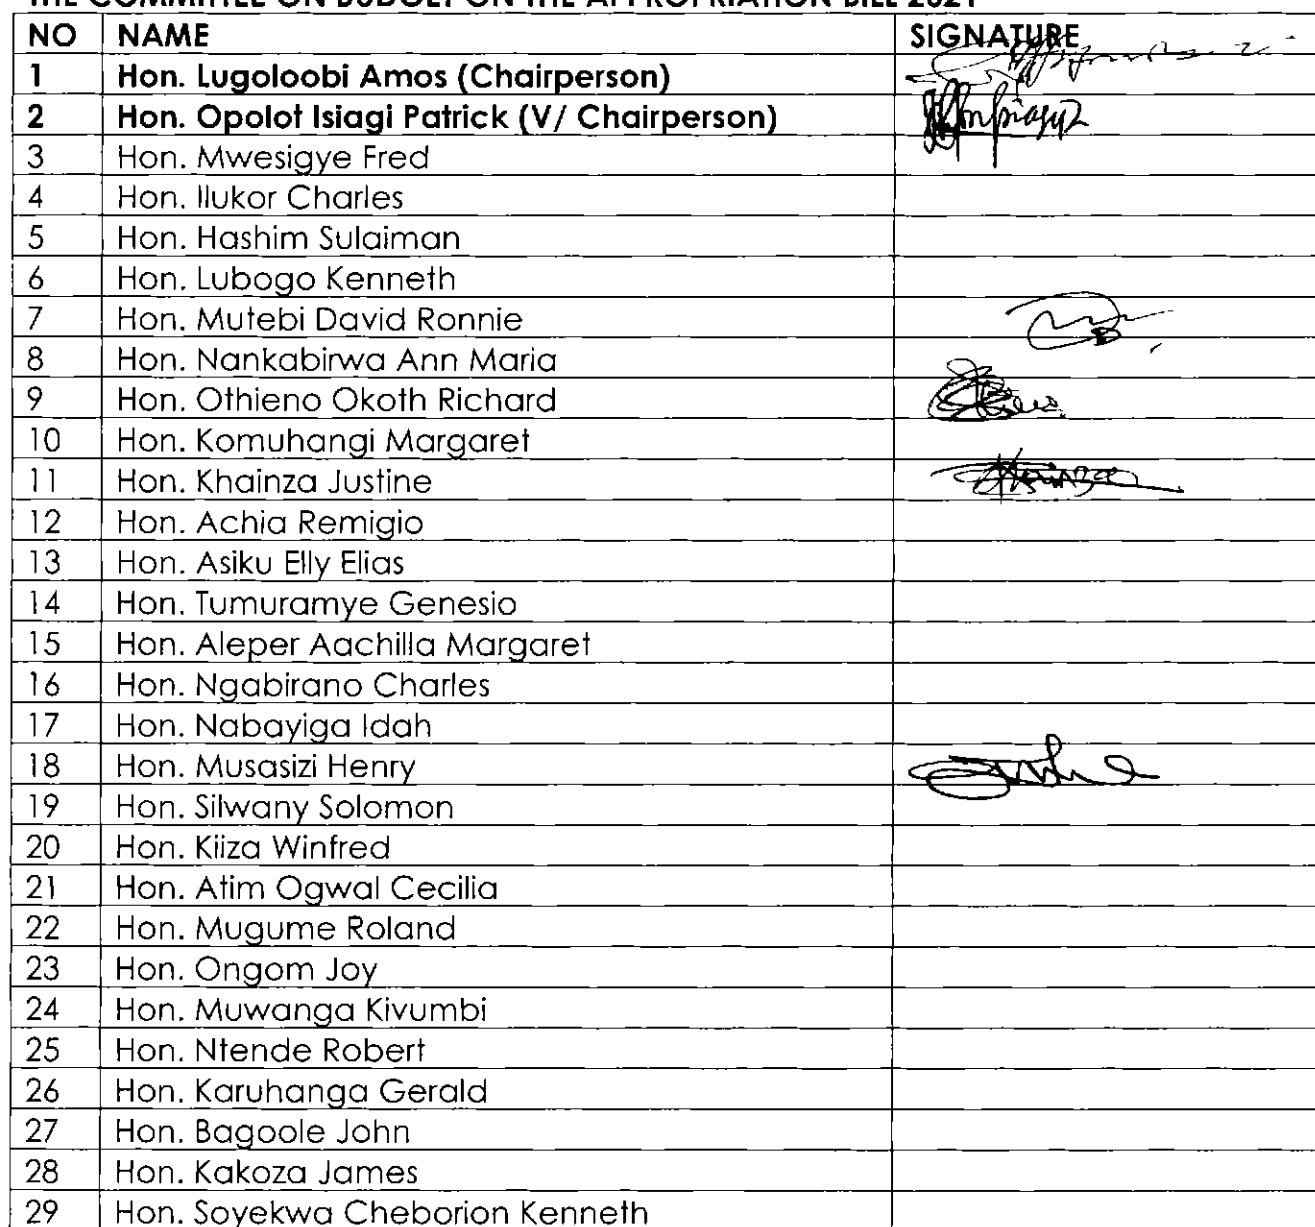 THE COMMITTEE ON BUDGET ON THE APPROPRIATION BILL 2021
NO NAME SIGNATURE
1 Hon. Lugoloobi Amos (Chairperson)
2 Hon. Opolot Isiagi Patrick (V/ Chairperson)
3 Hon. Mwesigye Fred
4 Hon. Ilukor Charles
5 Hon. Hashim Sulaiman
6 Hon. Lubogo Kenneth
7 Hon. Mutebi David Ronnie
8 Hon. Nankabirwa Ann Maria
9 Hon. Othieno Okoth Richard
10 Hon. Komuhangi Margaret
11 Hon. Khainza Justine
12 Hon. Achia Remigio
13 Hon. Asiku Elly Elias
14 Hon. Tumuramye Genesio
15 Hon. Aleper Aachilla Margaret
16 Hon. Ngabirano Charles
17 Hon. Nabayiga Idah
18 Hon. Musasizi Henry
19 Hon. Silwany Solomon
20 Hon. Kiiza Winfred
21 Hon. Atim Ogwal Cecilia
22 Hon. Mugume Roland
23 Hon. Ongom Joy
24 Hon. Muwanga Kivumbi
25 Hon. Ntende Robert
26 Hon. Karuhanga Gerald
27 Hon. Bagoole John
28 Hon. Kakoza James
29 Hon. Soyekwa Cheborion Kenneth